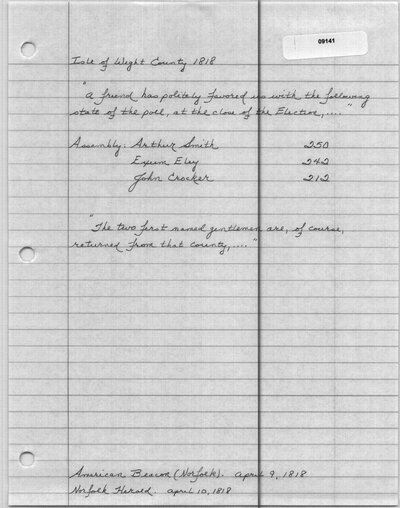 09141
Isle of Wight County 1818
"A friend has politely favored us with the following
state of the poll, at the close of the Election,...."
Assembly: Arthur Smith 250
Exum Eley 242
John Crocker 212
"The two first named gentlemen are, of course,
returned from that county,...."
American Beacon (Norfolk). April 9, 1818
Norfolk Herald. April 10, 1818